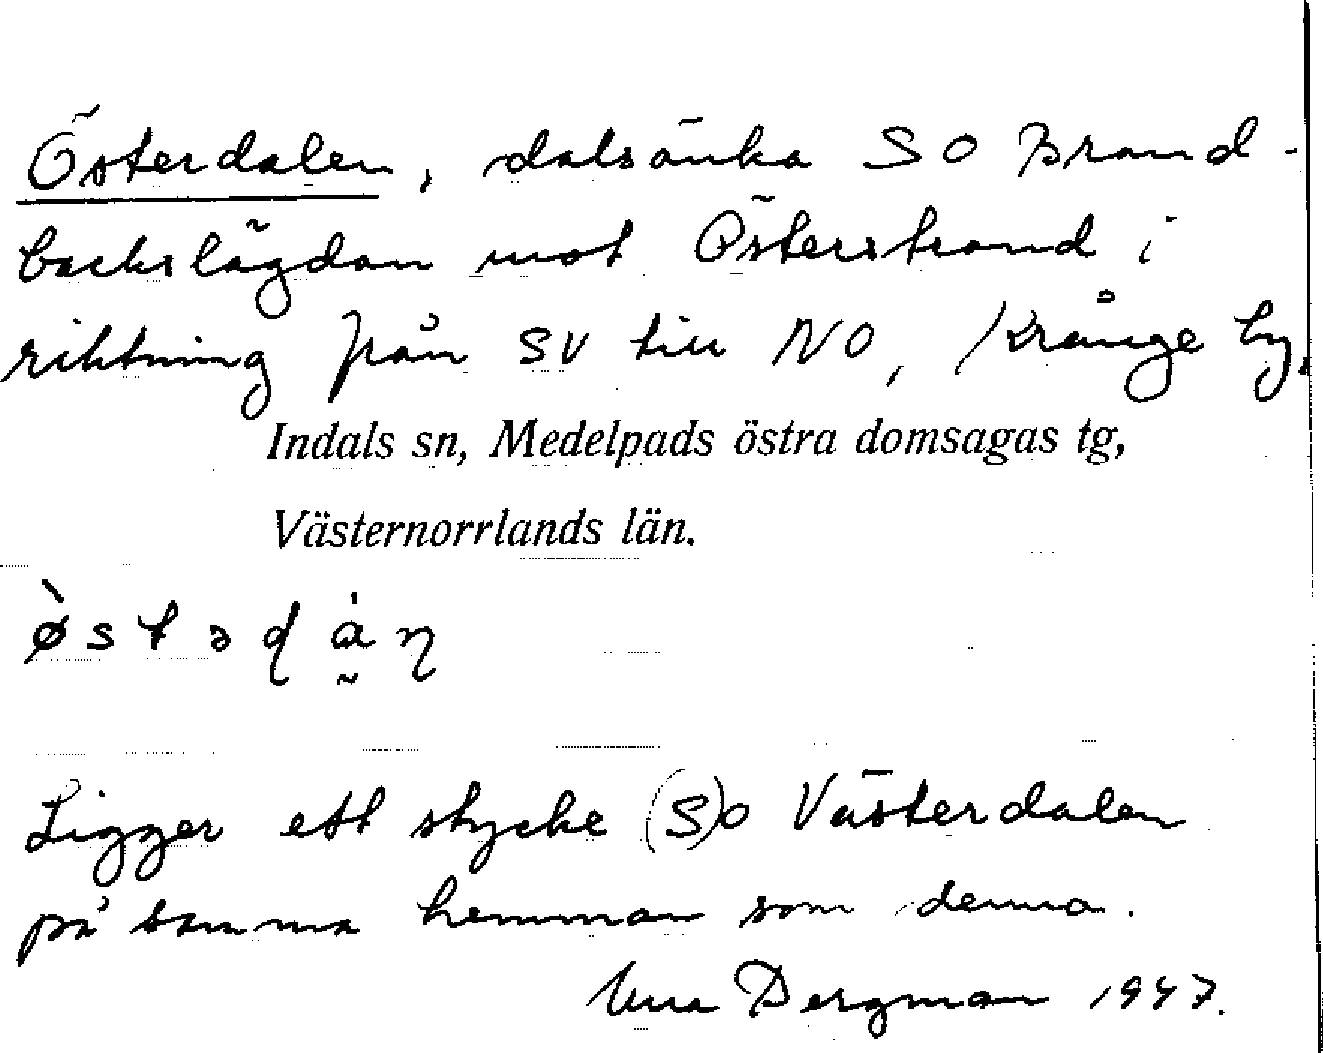 Österdalen, dalsänka SO Brand-
backslägdan mot Österstrand i
riktning från SV till NO, Krånge by,
Indals sn, Medelpads östra domsagas tg,
Västernorrlands län.
ø̀stəɖȧ̰ɳ
Ligger ett stycke (S)O Västerdalen
på samma hemman som denna.
Bergman 1947.